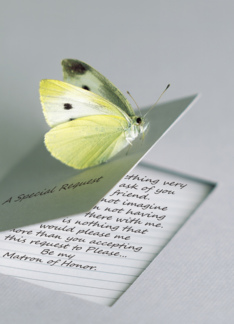 A Special Request
thing very
ask of you
friend.
not imagine
n not having
there with me.
is nothing that
would please me
ore than you accepting
this request to Please...
Be my
Matron of Honor.